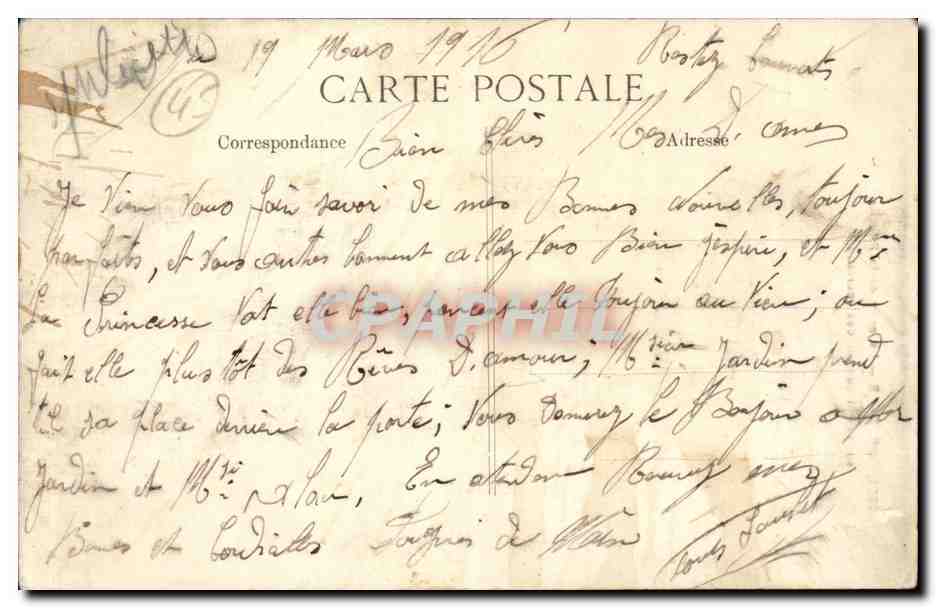 19 Mars 1916 Restez
4
CARTE POSTALE
Correspondance Adresse
Bien Chères Mes D'ames
Je Vien Vous fair savoir De mes Bonnes Nouvelles, toujour
parfaites, et Vous autres comment allez Vous Bien j'espère, et Mme
La Princesse Vat elle bien, pences elle Toujour au Vieu; ou
fait elle plus tôt des Rêves D'amour; Msieur Jardin prend
til sa place derrière la porte; Vous Donnerez le Bonjour a Mr
Jardin et En atendan Recevez mes
Bonnes et Cordialles Poignés de Main
CPAPHIL